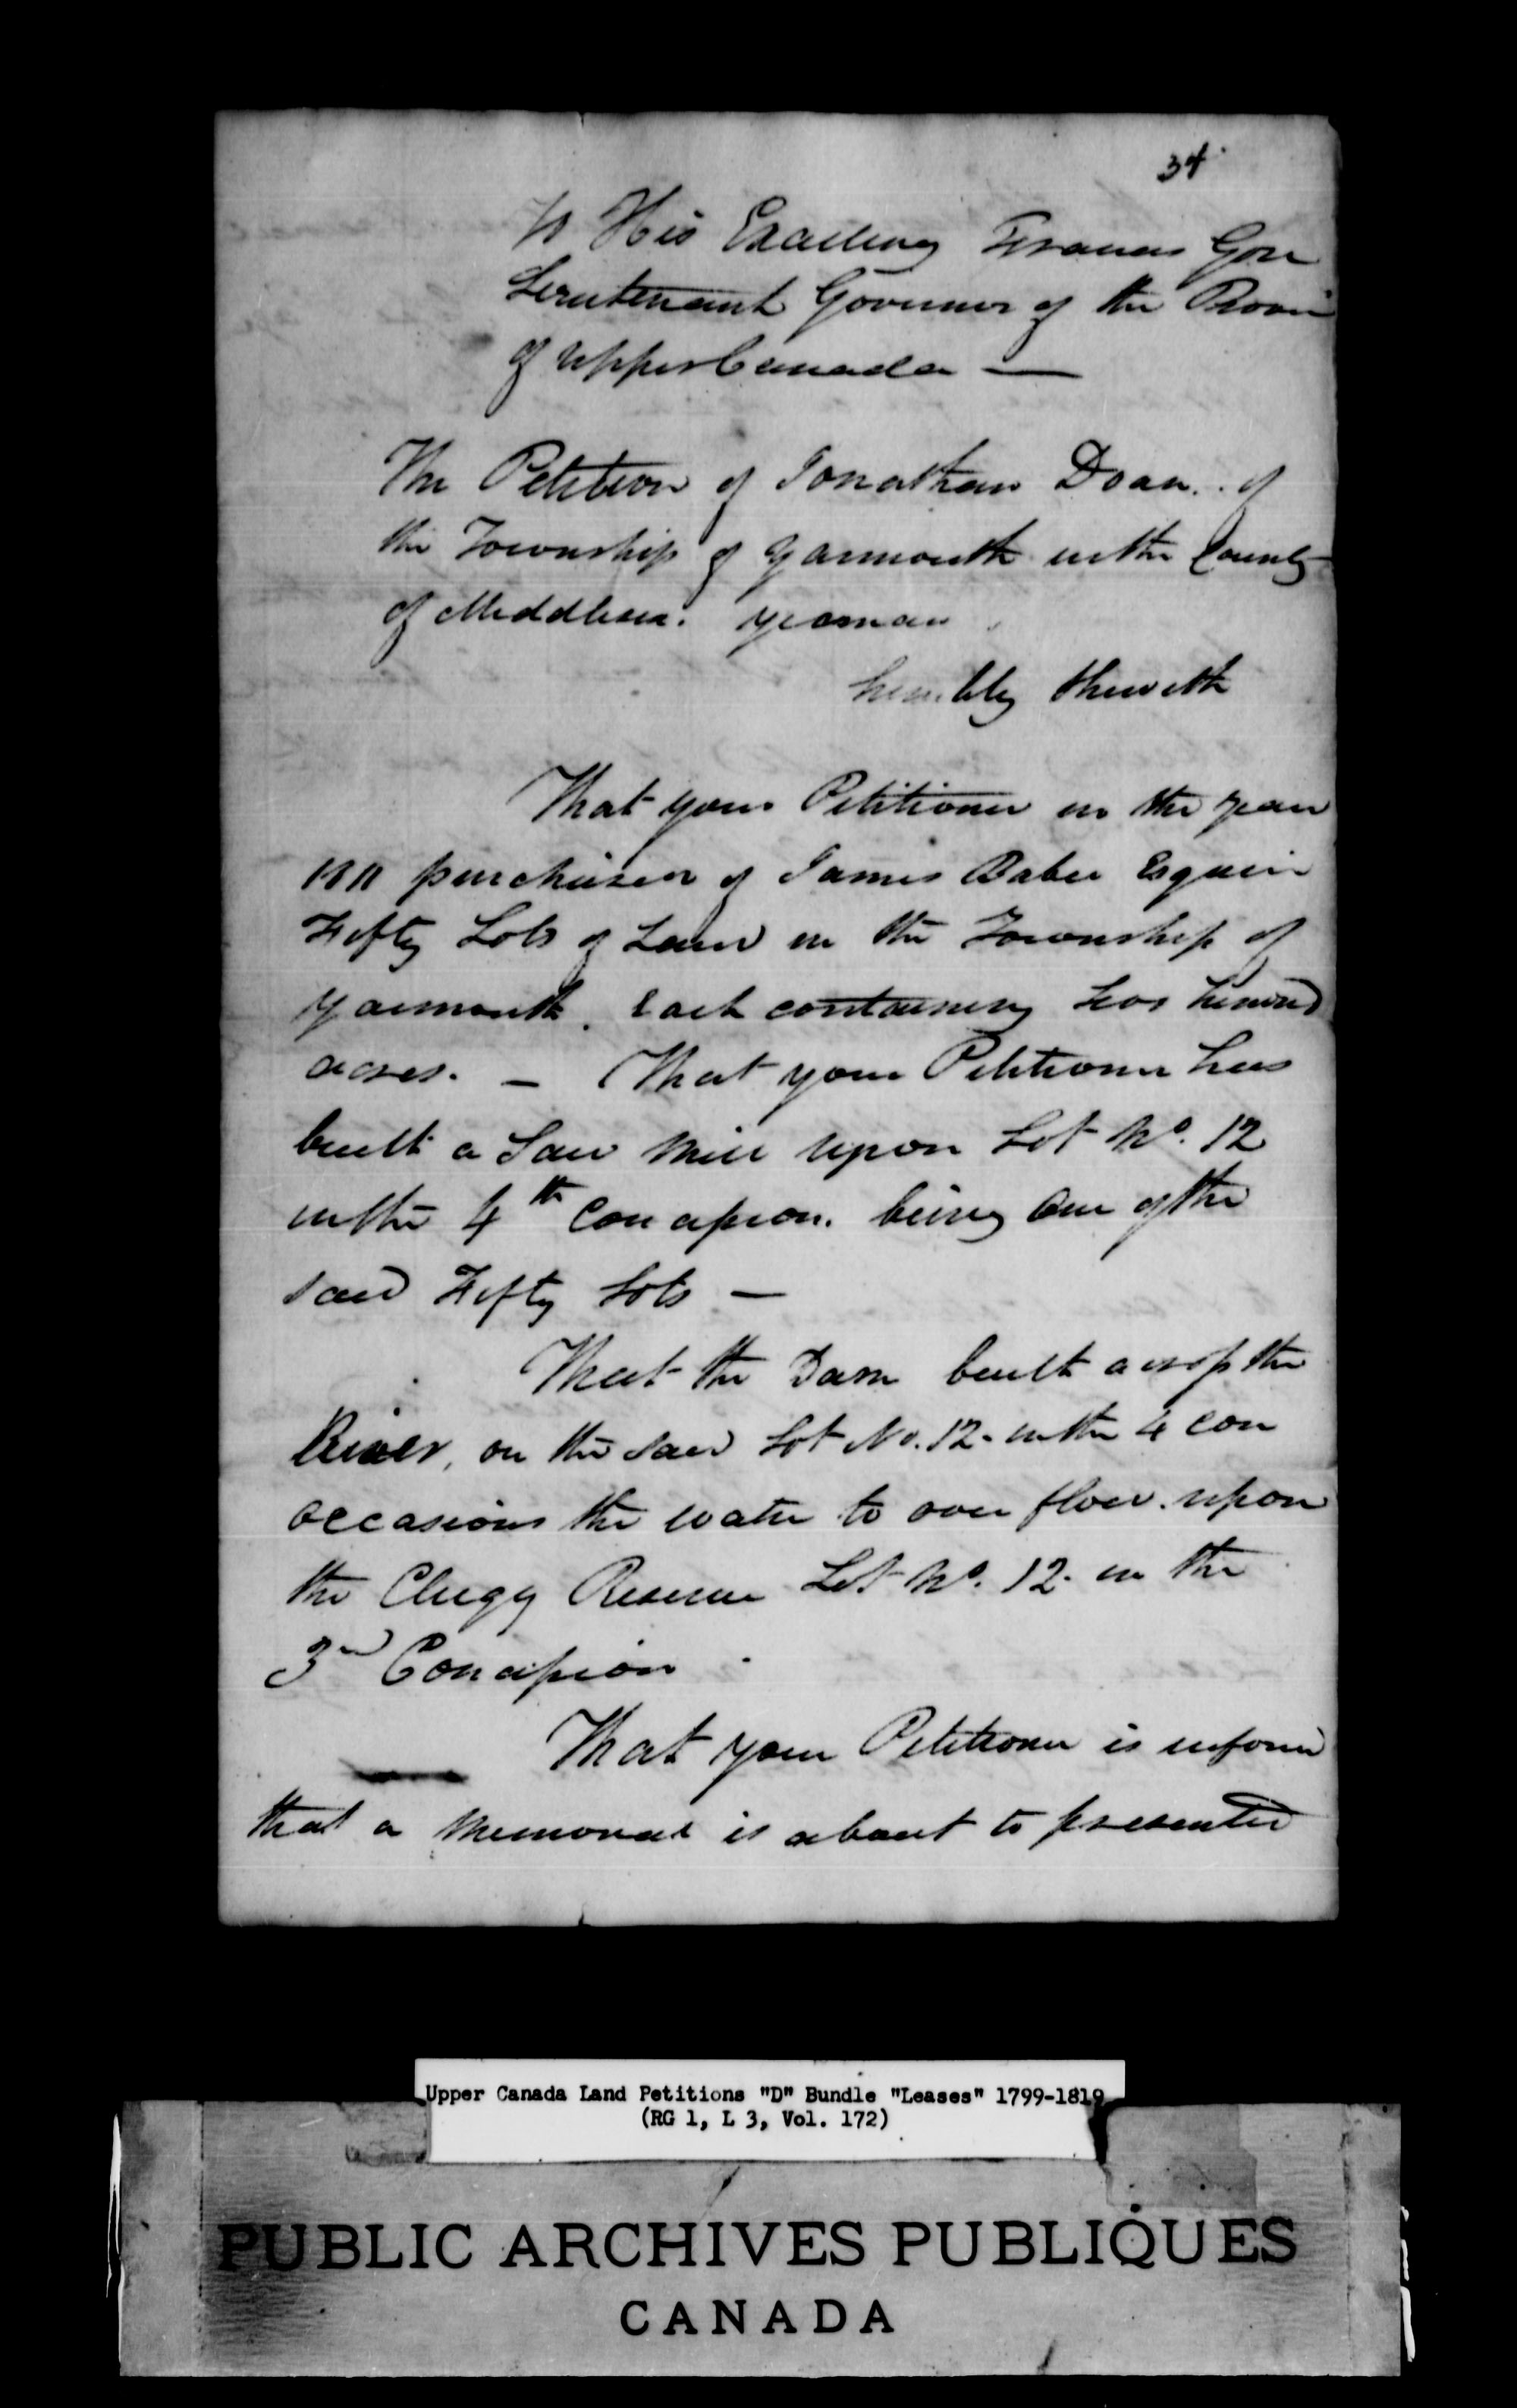 34
To His Excellency Francis Gore
Lieutenant Governor of the Provin
of Upper Canada —
The Petition of Jonathan Doan. of
the Township of Yarmouth in the County
of Middlesex. yeoman
humbly sheweth
That your Petitioner in the year
1811 purchased of James Baby Esquire
Fifty Lots of Land in the Township of
Yarmouth. Each containing two hundred
acres. — That your Petitioner has
built a Saw Mill upon Lot No. 12
in the 4th Concession. being one of the
said Fifty Lots —
That the Dam built across the
River, on the said Lot No. 12. in the 4 Con
occasions the water to over flow. upon
the Clergy Reserve Lot No. 12. in the
3rd Concession
That your Petitioner is informed
that a Memorial is about to presented
Upper Canada Land Petitions "D" Bundle "Leases" 1799-1819
(RG 1, L 3, Vol. 172)
PUBLIC ARCHIVES PUBLIQUES
CANADA